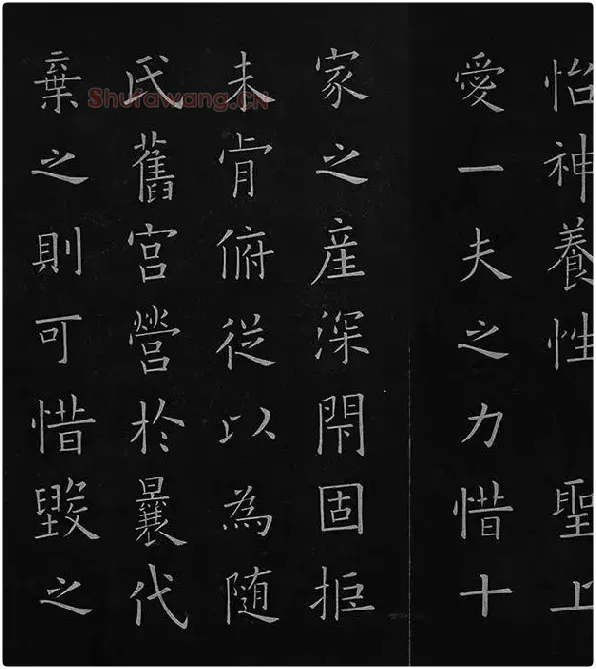 怡神養性 聖上
愛一夫之力惜十
家之産深閇固拒
未肯俯從以為随
氏舊宮營於曩代
棄之則可惜毀之
Shufawang.CN